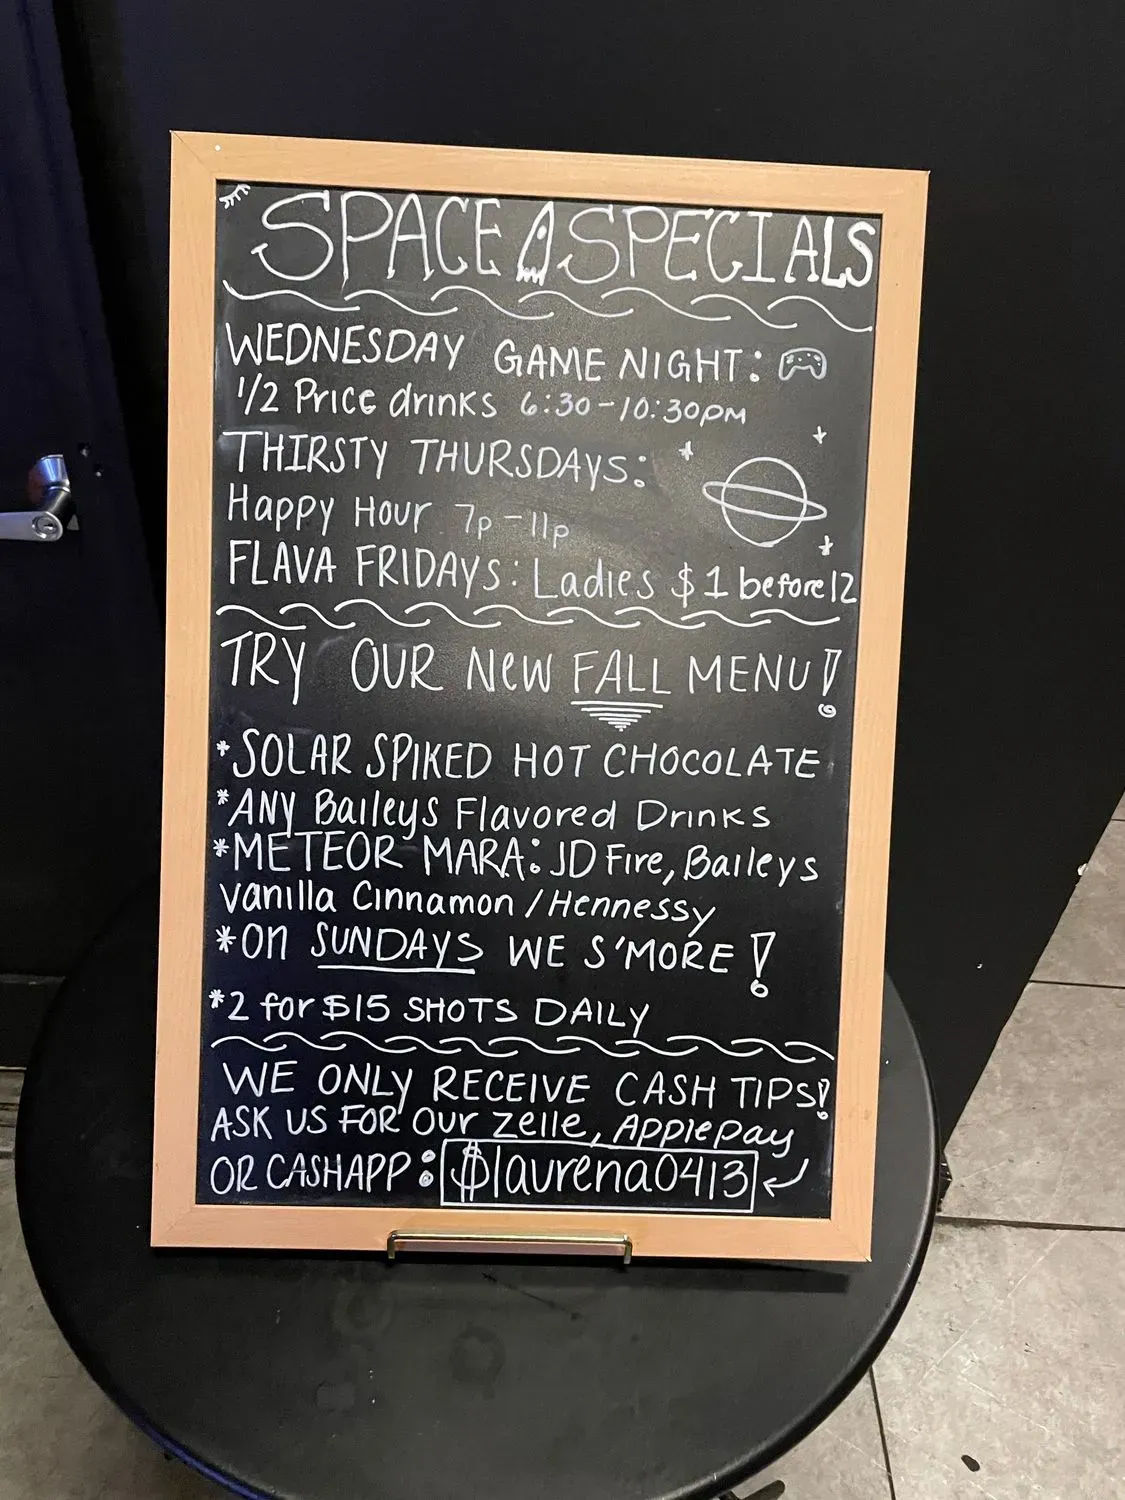 SPACE SPECIALS
WEDNESDAY GAME NIGHT:
1/2 Price drinks 6:30-10:30pm
THIRSTY THURSDAYS:
Happy Hour 7p-11p
FLAVA FRIDAYS: Ladies $1 before 12
TRY OUR NEW FALL MENU!
*SOLAR SPIKED HOT CHOCOLATE
*ANY Baileys Flavored Drinks
*METEOR MARA: JD Fire, Baileys
Vanilla Cinnamon / Hennessy
*On SUNDAYS WE S'MORE!
*2 for $15 SHOTS DAILY
WE ONLY RECEIVE CASH TIPS!
ASK US FOR OUR Zelle, Applepay
OR CASHAPP: $laurena0413